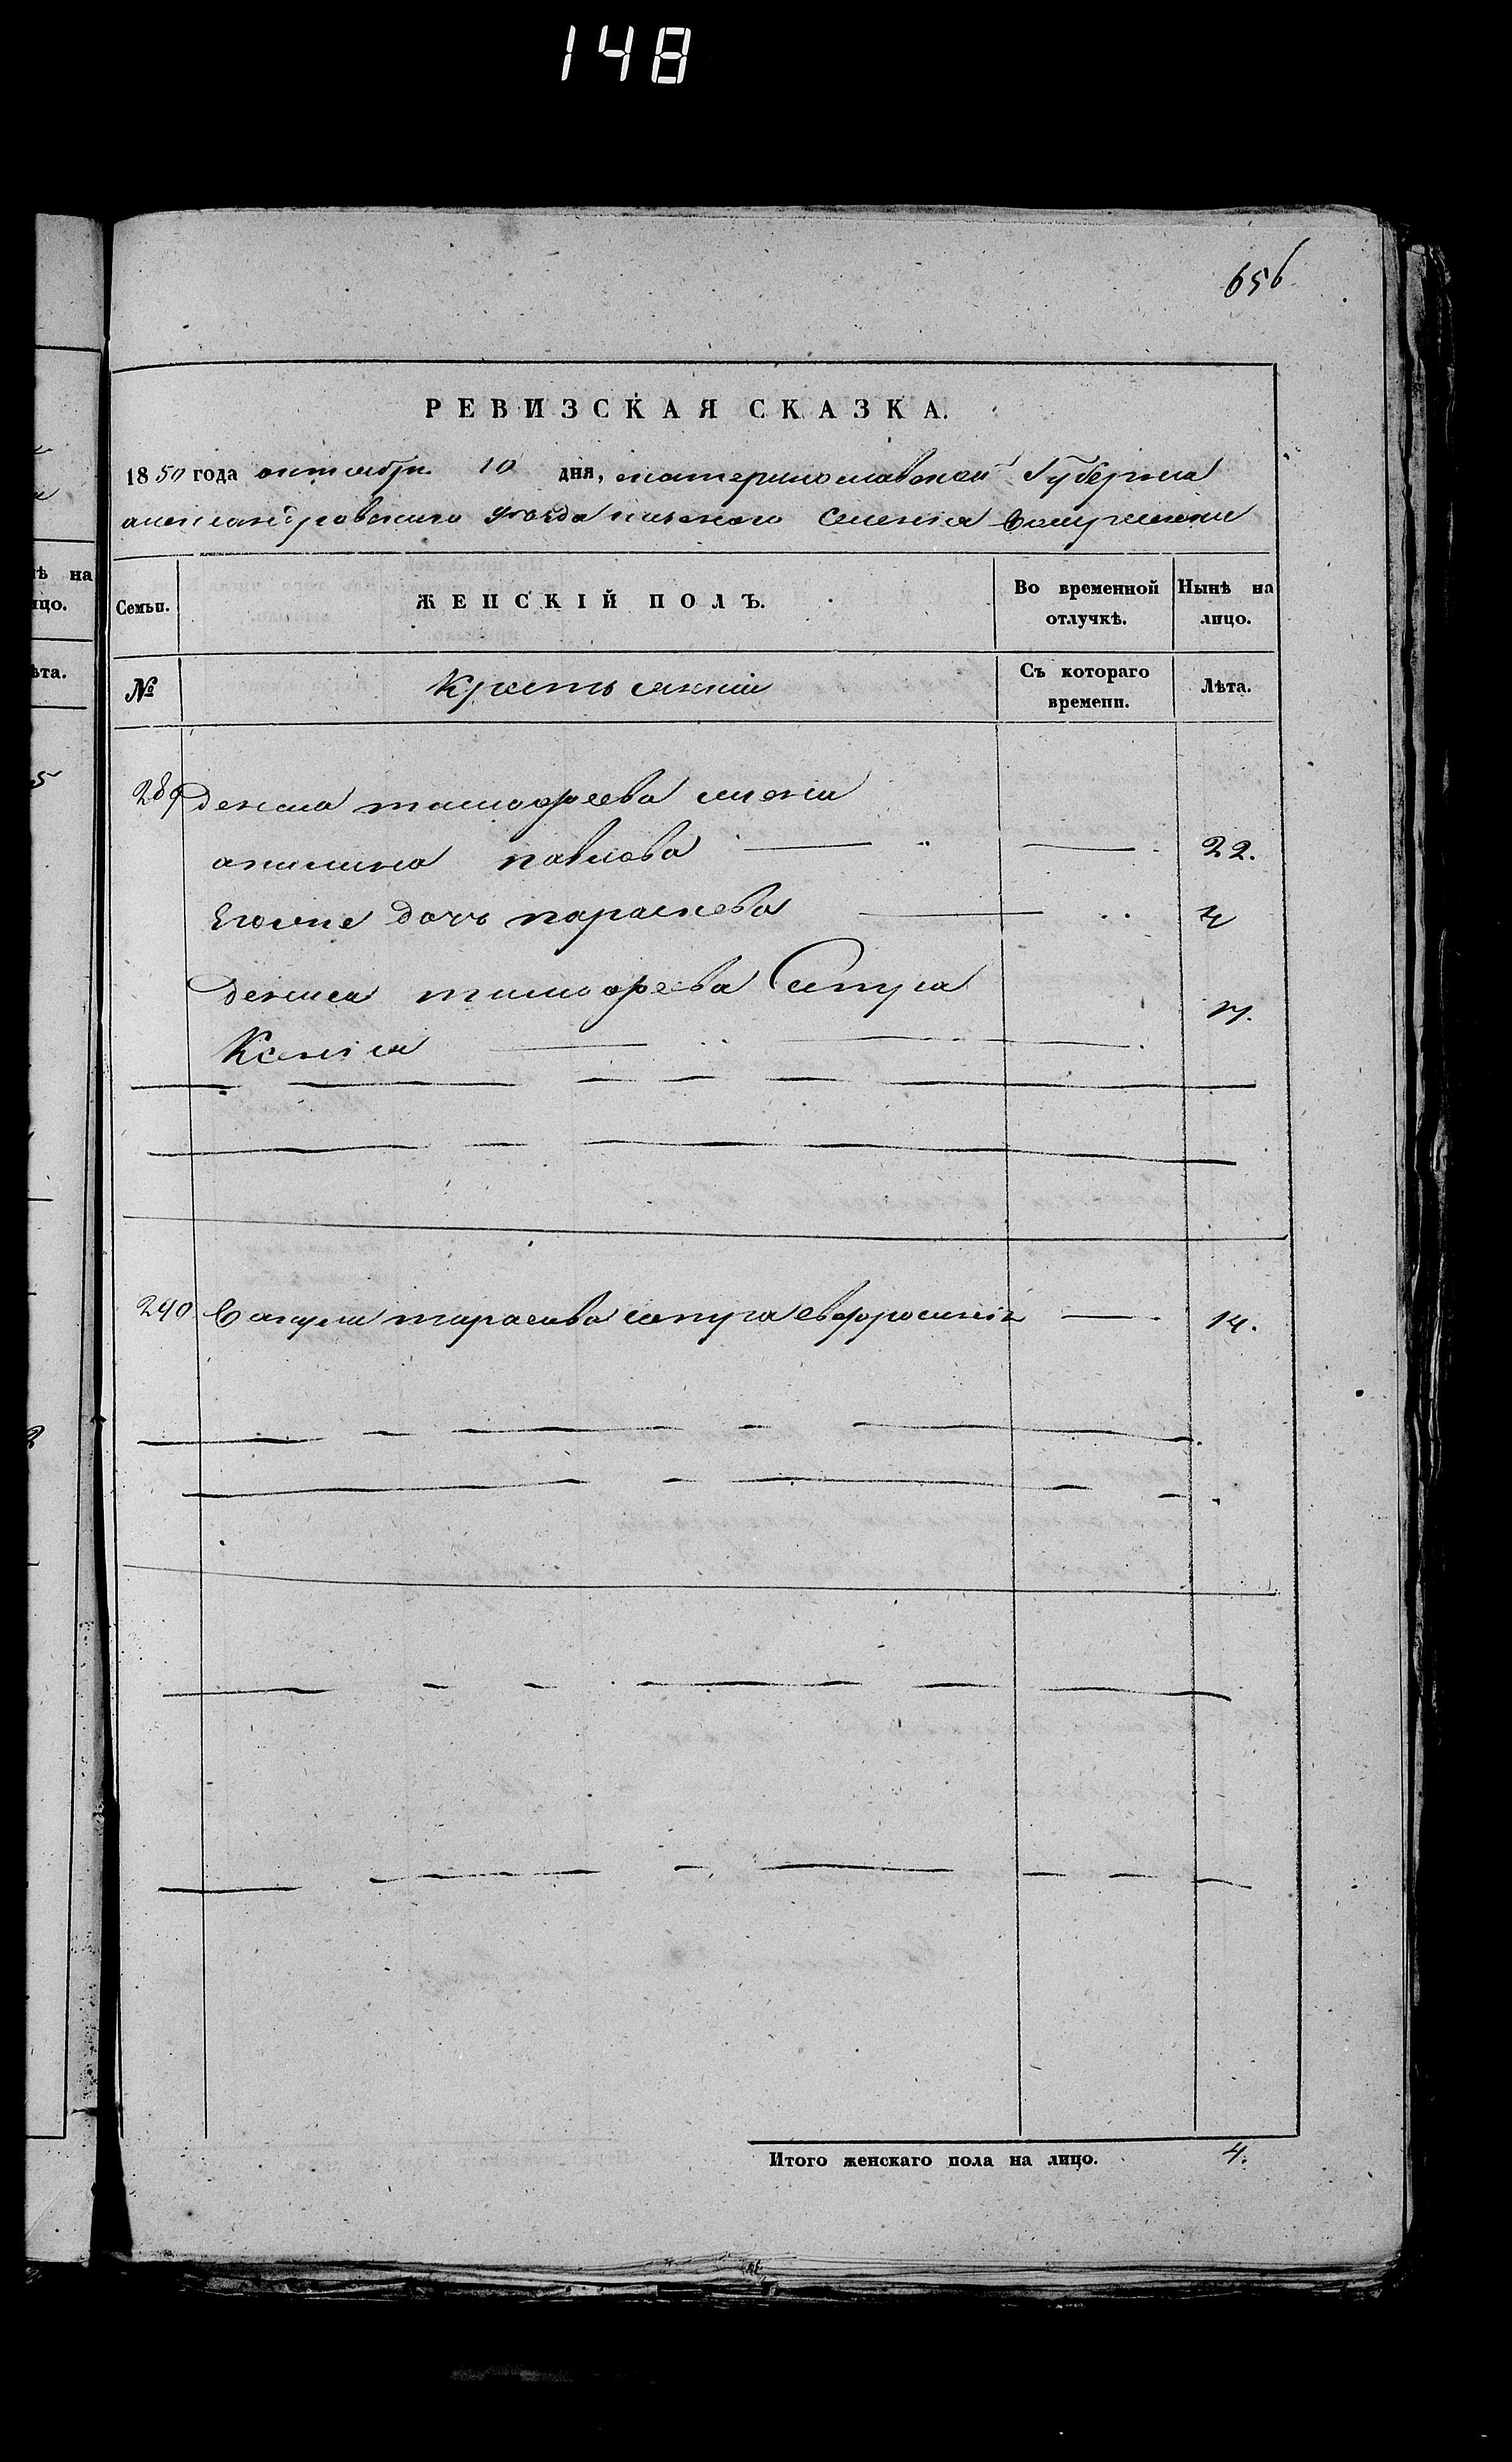 148
656
РЕВИЗСКАЯ СКАЗКА.
1850 года октября 10 дня, екатеринославской Губерніи
александровского уезда казенного Селенія
Семьи. ЖЕНСКІЙ ПОЛЪ. Во временной отлучкѣ. Нынѣ на лицо.
№ Крестьянкіи Съ котораго времени. Лѣта.
289 дениса тимофеева
акилина павлова — " — 22.
Егоже дочь параскева — .. 4
дениса тимофеева Сестра
Ксенія — .. — 17.
240 тарасова сестра евфросинія — 14.
Итого женскаго пола на лицо. 4.
ѣ на
ицо.
ѣта.
5
2